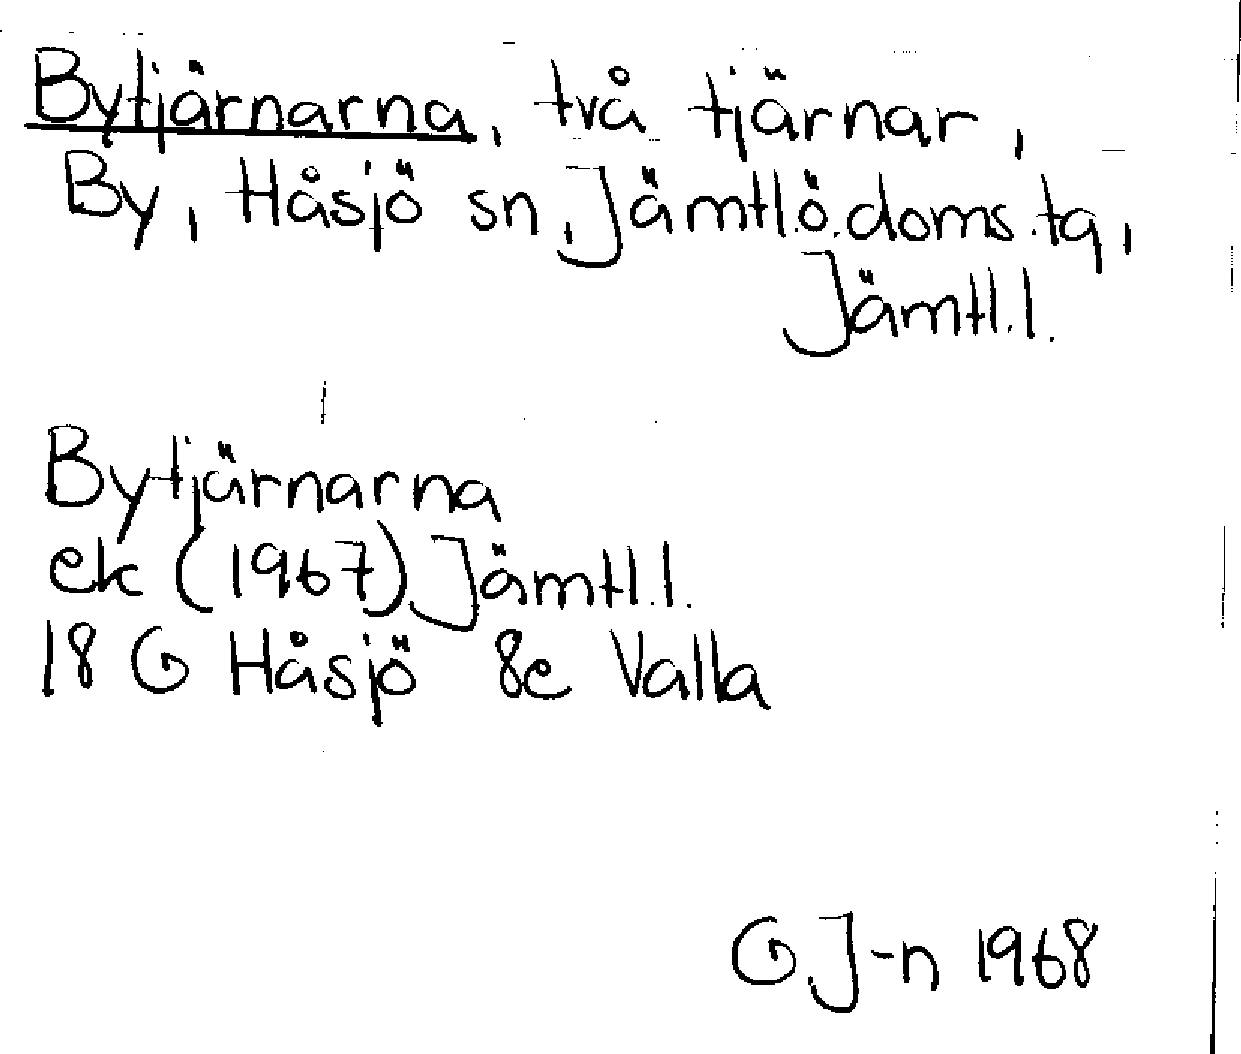 Bytjärnarna, två tjärnar,
By, Håsjö sn, Jämtl.ö.doms.tg,
Jämtl.l.
Bytjärnarna
ek (1967) Jämtl.l.
18 G Håsjö 8e Valla
G.J-n 1968